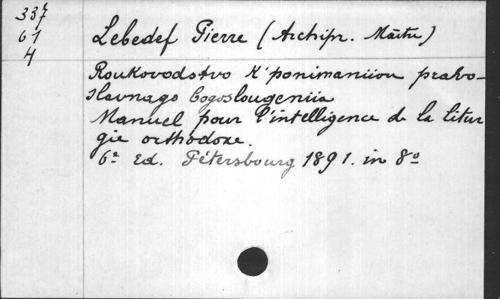 337
61
4
Lebedef Pierre (Archipr. Maître)
Roukovodstvo K'ponimaniiou pravo-
slavnago bogoslougeniia
Manuel pour l'intelligence de la litur
gie orthodoxe.
6e Ed. Pétersbourg 1891. in 8o